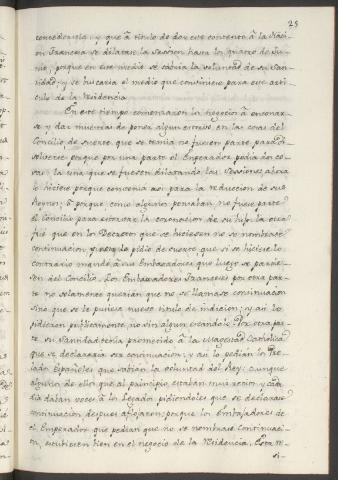 25
concedersela, y que à titulo de dar este contento à la Naci-
on Francesa se dilatase la Session hasta los quatro de Ju-
nio, porque en este medio se sabria la voluntad de su San-
tidad, y se buscaria el medio que conviniese para este arti-
culo de la Residencia.
En este tiempo comenzaron los negocios à enconar-
se, y dar muestras de poner algun estorvo en las cosas del
Concilio de suerte que se temia no fuesen parte para di-
solverse porque por una parte el Emperador pedia dos co-
sas, la una que se fuesen dilatando las Sessiones, ahora
lo hiciese porque convenia asi para la reduccion de sus
Reynos, ò porque como algunos pensaban no fuese parte
el Concilio para estorvar la coronacion de su hijo. La otra
fuè que en los Decretos que se hiciesen no se nombrase
continuacion, y esto lo pidio de suerte que si se hiciese lo
contrario mandò à sus Embaxadores que luego se partie-
sen del Concilio. Los Embaxadores Franceses por otra par-
te no solamente querian que no se llamase continuacion
sino que se le pusiese nuevo titulo de indiccion, y asi lo
pidieron publicamente no sin algun escandalo. Por otra par-
te su Santidad tenia prometido à la Magestad Catholica
que se declararia ser continuacion, y asi lo pedian los Pre-
lados Españoles que sabian la voluntad del Rey: aunque
algunos de ellos que al principio estaban muy recios y cada
dia daban voces à los Legados pidiendoles que se declarase
continuacion despues afloxaron: porque los embajadores de
el Emperador que pedian que no se nombrase Continuaci-
on, estubieron bien en el negocio de la Residencia. Esta
si-